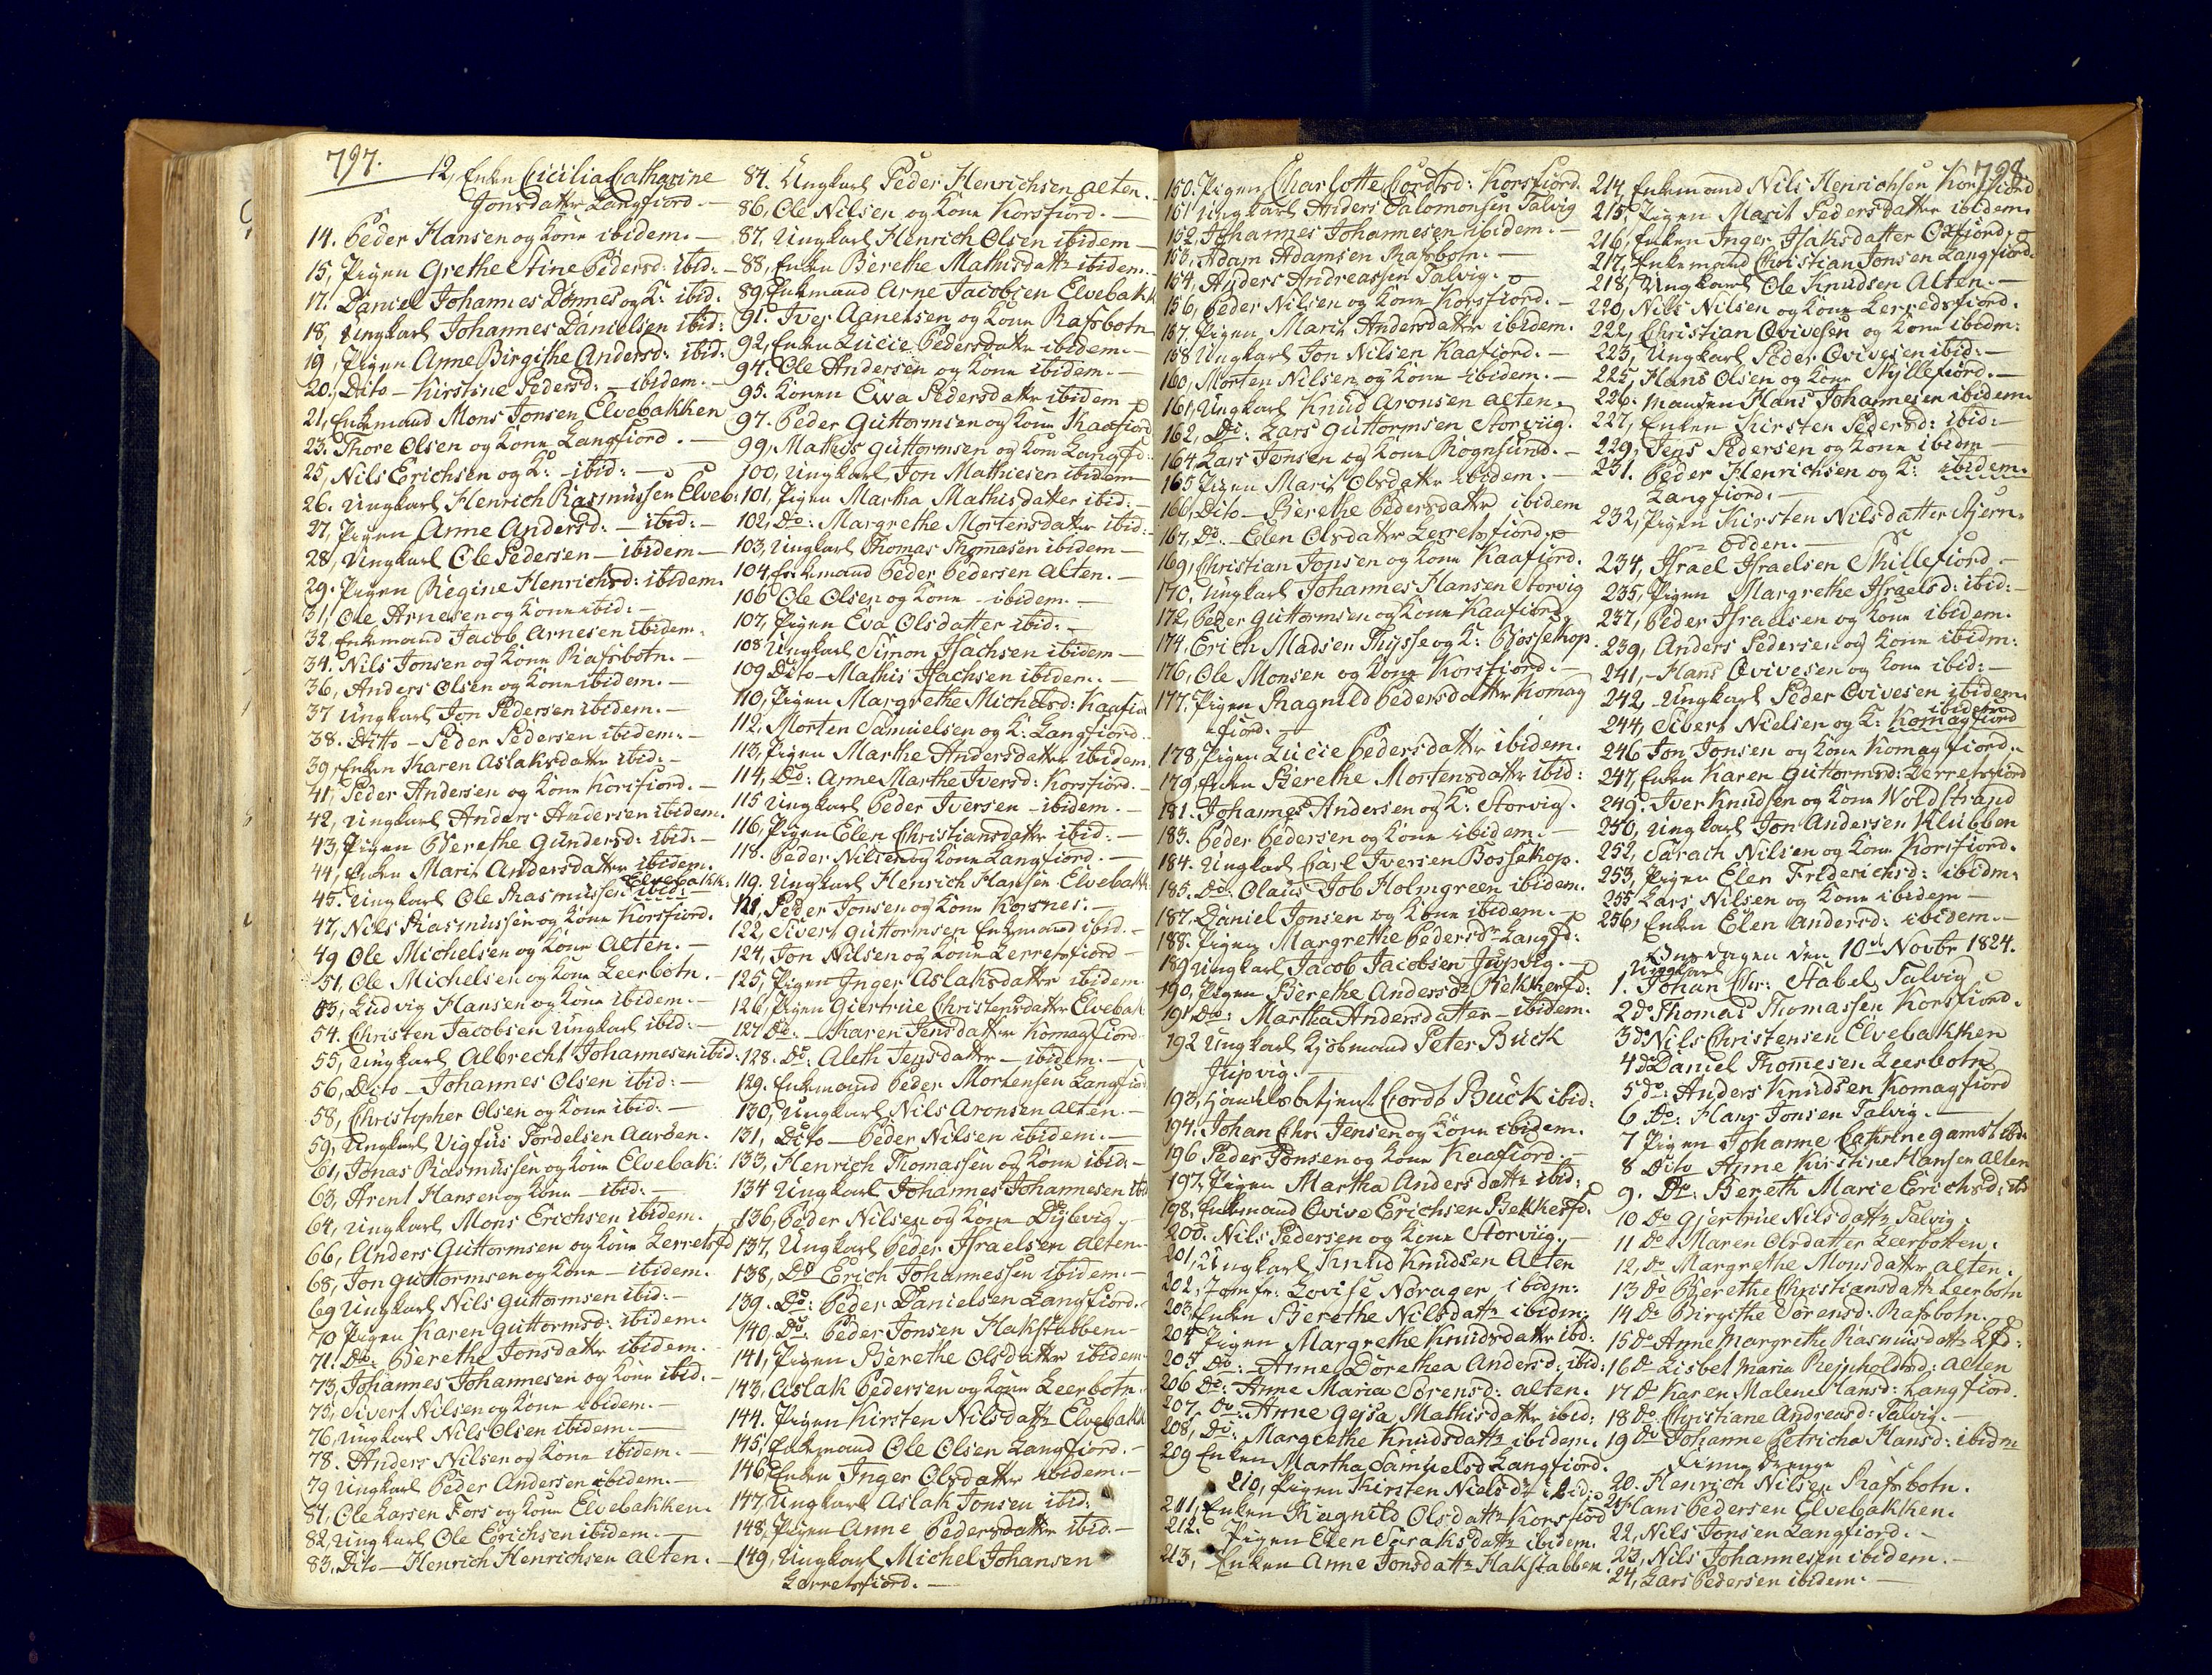 797.
12, Enken Cicilia Catharine
Jonsdatter Langfiord. —
14. Peder Hansen og Kone ibidem. —
15, Pigen Grethe Stine Pedersd: ibid: —
17. Daniel Johannes Dønnes og K: ibid:
18, Ungkarl Johannes Danielsen ibid:
19, Pigen Anne Birgithe Andersd: ibid:
20, Dito — Kirstine Pedersd: — ibidem. —
21, Enkemand Mons Jonsen Elvebakken
23. Thore Olsen og Kone Langfiord. —
25, Nils Erichsen og K: — ibid: —
26. Ungkarl Henrich Rasmussen Elveb:
27, Pigen Anne Andersd: — ibid: —
28, Ungkarl Ole Pedersen — ibidem —
29. Pigen Regine Henrichsd: ibidem.
31, Ole Arnesen og Kone ibid: —
32. Enkemand Jacob Arnesen ibidem.
34. Nils Jonsen og Kone Rafsbotn. —
36, Anders Olsen og Kone ibidem. —
37 Ungkarl Jon Pedersen ibidem. —
38. Ditto — Peder Pedersen ibidem. —
39, Enken Karen Aslaksdatter ibid: —
41, Peder Andersen og Kone Korsfiord. —
42, Ungkarl Anders Andersen ibidem.
43, Pigen Berethe Gundersd: ibid: —
44, Enken Marit Andersdatter ibidem.
45. Ungkarl Ole Rasmussen ibid: Elvebakk:
47, Nils Rasmussen og Kone Korsfiord.
49 Ole Michelsen og Kone Alten. —
51, Ole Michelsen og Kone Leerbotn. —
53, Ludvig Hansen og Kone ibidem. —
54. Christen Jacobsen Ungkarl ibid: —
55, Ungkarl Albrecht Johannesen ibid:
56, Dito — Johannes Olsen ibid: —
58, Christopher Olsen og Kone ibid: —
59, Ungkarl Vigfus Tordelsen Aarøen.
61, Jonas Rasmussen og Kone Elvebak:
63, Arent Hansen og Kone — ibid: —
64, Ungkarl Mons Erichsen ibidem.
66, Anders Guttormsen og Kone Lerretsfd
68, Jon Guttormsen og Kone — ibidem.
69 Ungkarl Nils Guttormsen ibid: —
70 Pigen Karen Guttormsd: ibidem.
71. Do: Berethe Jonsdatter ibidem. —
73, Johannes Johannesen og Kone ibid. —
75, Sivert Nilsen og Kone ibidem. —
76, Ungkarl Nils Olsen ibidem. —
78. Anders Nilsen og Kone ibidem. —
79 Ungkarl Peder Andersen ibidem. —
81, Ole Larsen Fors og Kone Elvebakken.
82, Ungkarl Ole Erichsen ibidem. —
83, Dito — Henrich Henrichsen Alten. —
84. Ungkarl Peder Henrichsen Alten. —
86, Ole Nilsen og Kone Korsfiord. —
87, Ungkarl Henrich Olsen ibidem —
88, Enken Berethe Mathisdattr ibidem. —
89, Enkemand Arne Jacobsen Elvebakk
91. Iver Agnethsen og Kone Rafsbotn
92, Enken Lucie Pedersdattr ibidem. —
94. Ole Andersen og Kone ibidem. —
95. Konen Ewa Pedersdattr ibidem
97. Peder Guttormsen og Kone Kaafiord
99, Mathis Guttormsen og Kone Langfd:
100, Ungkarl Jon Mathiesen ibidem
101, Pigen Martha Mathisdatter ibid: —
102, Do: Margrethe Mortensdattr ibid:
103, Ungkarl Thomas Thomasen ibidem —
104, Enkemand Peder Pedersen Alten. —
106 Ole Olsen og Kone — ibidem. —
107, Pigen Eva Olsdatter ibid: —
108 Ungkarl Simon Isachsen ibidem —
109 Dito — Mathis Isachsen ibidem. —
110, Pigen Margrethe Michelsd: Kaafio
112, Morten Samuelsen og K: Langfiord.
113, Pigen Marthe Andersdattr ibidem
114. Do: Anne Marthe Iversd: Korsfiord. —
115 Ungkarl Peder Iversen — ibidem. —
116, Pigen Elen Christiansdattr ibid: —
118. Peder Nilsen og Kone Langfiord. —
119. Ungkarl Henrich Hansen Elvebakk
121, Peder Jonsen og Kone Korsnes. —
122, Sivert Guttormsen Enkemand ibid. —
124, Jon Nilsen og Kone Lerretsfiord —
125, Pigen Inger Aslaksdattr ibidem
126, Pigen Giertrue Christensdatter Elvebak
127 Do: — Karen Jensdatter Komagfiord
128. Do: Aleth Jensdattr — ibidem. —
129. Enkemand Peder Mortensen Langfio:
130, Ungkarl Nils Aronsen Alten. —
131, Dito — Peder Nilsen ibidem. —
133, Henrich Thomassen og Kone ibid: —
134 Ungkarl Johannes Johannesen ibd
136, Peder Nilsen og Kone Dybvig. —
137, Ungkarl Peder Israelsen Alten.
138, Do Erich Johannessen ibidem. —
139. Do: Peder Danielsen Langfiord.
140, Do: Peder Jonsen Hakstabben —
141, Pigen Berethe Olsdatter ibidem
143, Aslak Pedersen og Kone Leerbotn
144. Pigen Kirsten Nilsdattr Elvebakk
145, Enkemand Ole Olsen Langfiord. —
146, Enken Inger Olsdatter ibidem. —
147, Ungkarl Aslak Jonsen ibid:
148, Pigen Anne Pedersdatter ibid: —
149, Ungkarl Michel Johansen
Lerretsfiord. —
798
150. Pigen Charlotte Cordtsd: Korsfiord.
151 Ungkarl Anders Salomonsen Talvig
152, Johannes Johannesen ibidem. —
153. Adam Adamsen Rafsbotn. —
154, Anders Andreassen Talvig.
156, Peder Nilsen og Kone Korsfiord. —
157. Pigen Marit Andersdattr ibidem.
158 Ungkarl Jon Nilsen Kaafiord. —
160, Morten Nilsen og Kone ibidem. —
161, Ungkarl Knud Aronsen Alten.
162, Do: Lars Guttormsen Storviig.
164 Lars Jonsen og Kone Rognsund. —
165 Pigen Marit Olsdattr ibidem. —
166, Dito — Berethe Pedersdattr ibidem
167, Do. — Elen Olsdatter Lerretsfiord.
169, Christian Jonsen og Kone Kaafiord.
170, Ungkarl Johannes Hansen Storvig
172, Peder Guttormsen og Kone Kaafiord,
174, Erich Madsen Thysse og K: Bossekop
176, Ole Monsen og Kone Korsfiord. —
177. Pigen Ragnild Pedersdattr Komag
fiord.
178, Pigen Lucie Pedersdattr ibidem.
179, Enken Berethe Mortensdattr ibid:
181. Johannes Andersen og K: Storvig.
183. Peder Pedersen og Kone ibidem. —
184. Ungkarl Carl Iversen Bossekop.
185. Do: Olaus Job Holmgreen ibidem.
187. Daniel Jonsen og Kone ibidem. —
188. Pigen Margrethe Pedersdr Langfd:
189 Ungkarl Jacob Jacobsen Jupvig. —
190, Pigen Berethe Andersdr Bekkerfd:
191 Do: Martha Andersdatter — ibidem.
192 Ungkarl Kjøbmand Peter Buck
Jupvig. —
193, Handelsbetjent Cordt Buck ibid:
194. Johan Chr: Jensen og Kone ibidem.
196. Peder Jonsen og Kone Kaafiord. —
197, Pigen Martha Andersdattr ibid:
198, Enkemand Qvive Erichsen Bekkerfd.
200. Nils Pedersen og Kone Storviig. —
201, Ungkarl Knud Knudsen Alten
202, Jomfr: Lovise Norager ibdm:
203, Enken Berethe Nilsdattr ibidm:
204 Pigen Margrethe Knudsdattr ibd:
205 Do: Anne Dorethea Andersd: ibid:
206 Do: Anne Maria Sørensd: Alten.
207. Do: Anne Gejsa Mathisdattr ibid:
208, Do: Margrethe Knudsdattr ibidem.
209 Enken Martha Samuelsd Langfiord.
210, Pigen Kirsten Nielsdr ibid:
211, Enken Ragnild Olsdattr Korsfiord
212. Pigen Elen Saraksdattr ibidem.
213, Enken Anne Jonsdattr Hakstabben.
214 Enkemand Nils Henrichsen Korsfiord
215, Pigen Marit Pedersdatter ibidem.
216, Enken Inger Isaksdatter Oxfiord.
217, Enkemand Christian Jonsen Langfiord.
218, Ungkarl Ole Knudsen Alten. —
220, Nils Nilsen og Kone Lerredsfiord.
222, Christian Qvivesen og Kone ibidm:
223, Ungkarl Peder Qvivesen ibid: —
225, Hans Olsen og Kone Skyllefiord. —
226. Manden Hans Johannesen ibidem.
227, Enken Kirsten Pedersd: ibid: —
229, Jens Pedersen og Kone ibidm —
231. Peder Henrichsen og K: ibidem.
Langfiord. —
232, Pigen Kirsten Nilsdatter Stjern-
odden. —
234, Israel Israelsen Skillefiord. —
235, Pigen Margrethe Israelsd: ibid: —
237, Peder Israelsen og Kone ibidem.
239, Anders Pedersen og Kone ibidm:
241, — Hans Qvivesen og Kone ibid: —
242, Ungkarl Peder Qvivesen ibidem.
ibidem
244, Sivert Nielsen og K: Komagfiord
246 Jon Jonsen og Kone Komagfiord. —
247, Enken Karen Guttormsd: Lerretsfiord
249. Iver Knudsen og Kone Woldstrand
250, Ungkarl Jon Andersen Klubben
252, Sarach Nilsen og Kone Korsfiord.
253, Pigen Elen Friderichsd: ibidm.
255 Lars Nilsen og Kone ibidem —
256, Enken Elen Andersd: ibidem. —
Onsdagen den 10de Novbr 1824.
Ungkarl
1. Johan Chr: Stabel Talvig
2 do Thomas Thomassen Korsfiord.
3 do Nils Christensen Elvebakken
4 do Daniel Thomesen Leerbotn
5 do: Anders Knudsen Komagfiord
6 Do: Hans Jonsen Talvig. —
7 Pigen Johanne Cathrine Gamst ibd:
8 Dito Anne Kirstine Hansen Alten
9. Do: Bereth Marie Erichsd: ibd
10 Do Gjertrue Nilsdattr Talvig
11 Do Maren Olsdatter Leerbotten.
12, Do Margrethe Monsdattr Alten.
13 Do Berethe Christiansdattr Leerbotn
14 Do Birgithe Sørensd: Rafsbotn.
15 Do Anne Margrethe Rasmusdattr Lfd:
16 Do Lisbet Maria Rejnholdtsd: Alten
17 Do Karen Malene Hansd: Langfiord.
18 Do. Christiane Andreasd: Talvig. —
19 Do Johanne Petricha Hansd: ibidm
Finne Drenge
20. Henrich Nilsen Rafsbotn.
21, Hans Pedersen Elvebakken.
22, Nils Jonsen Langfiord. —
23, Nils Johannesen ibidem. —
24, Lars Pedersen ibidem. —